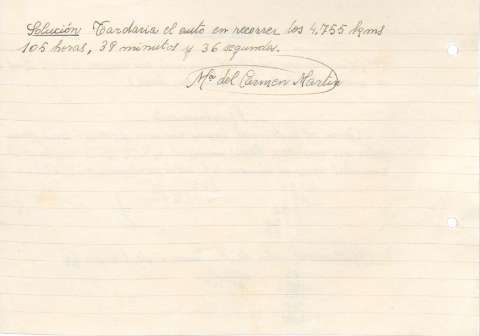 Solución Tardaría el auto en recorrer los 4.755 kqms
105 horas, 39 minutos y 36 segundos.
Mª del Carmen Martin